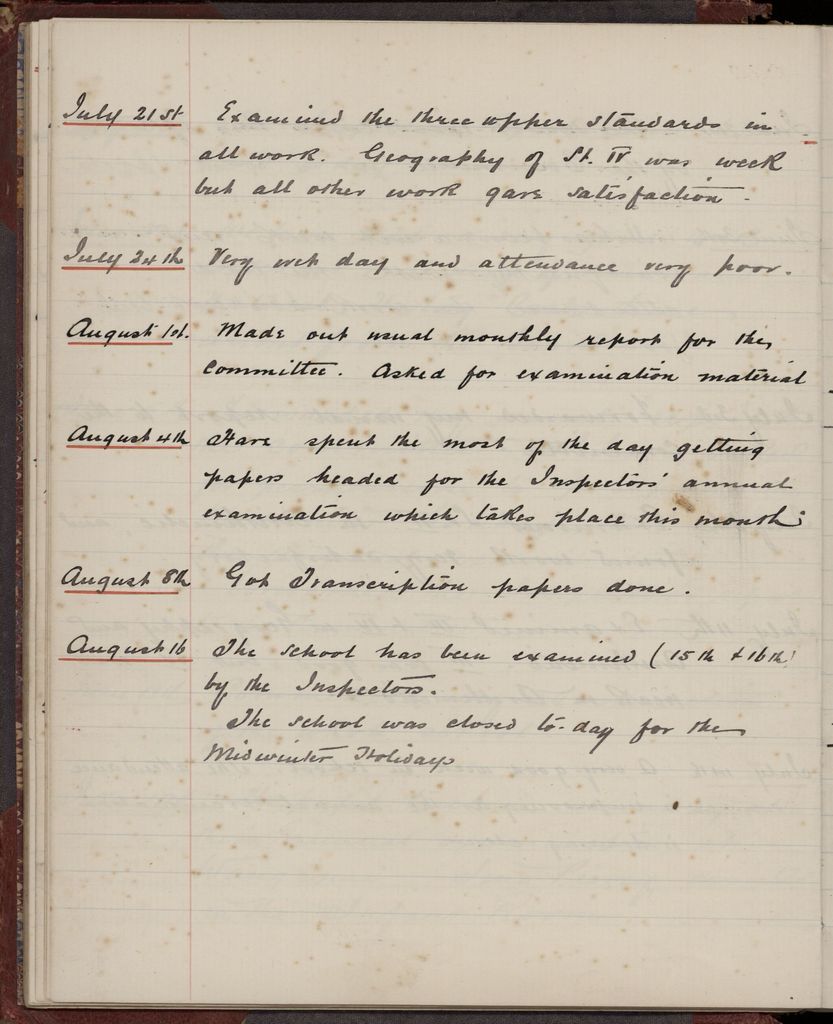 July 21st Examined the three upper standards in
all work. Geography of St. IV was week
but all other work gave satisfaction.
July 24th Very wet day and attendance very poor.
August 1st. Made out usual monthly report for the
Committee. Asked for examination material
August 4th Have spent the most of the day getting
papers headed for the Inspectors' annual
examination which takes place this month.
August 8th Got Transcription papers done.
August 16 The school has been examined (15th & 16th)
by the Inspectors.
The school was closed to-day for the
Midwinter Holidays